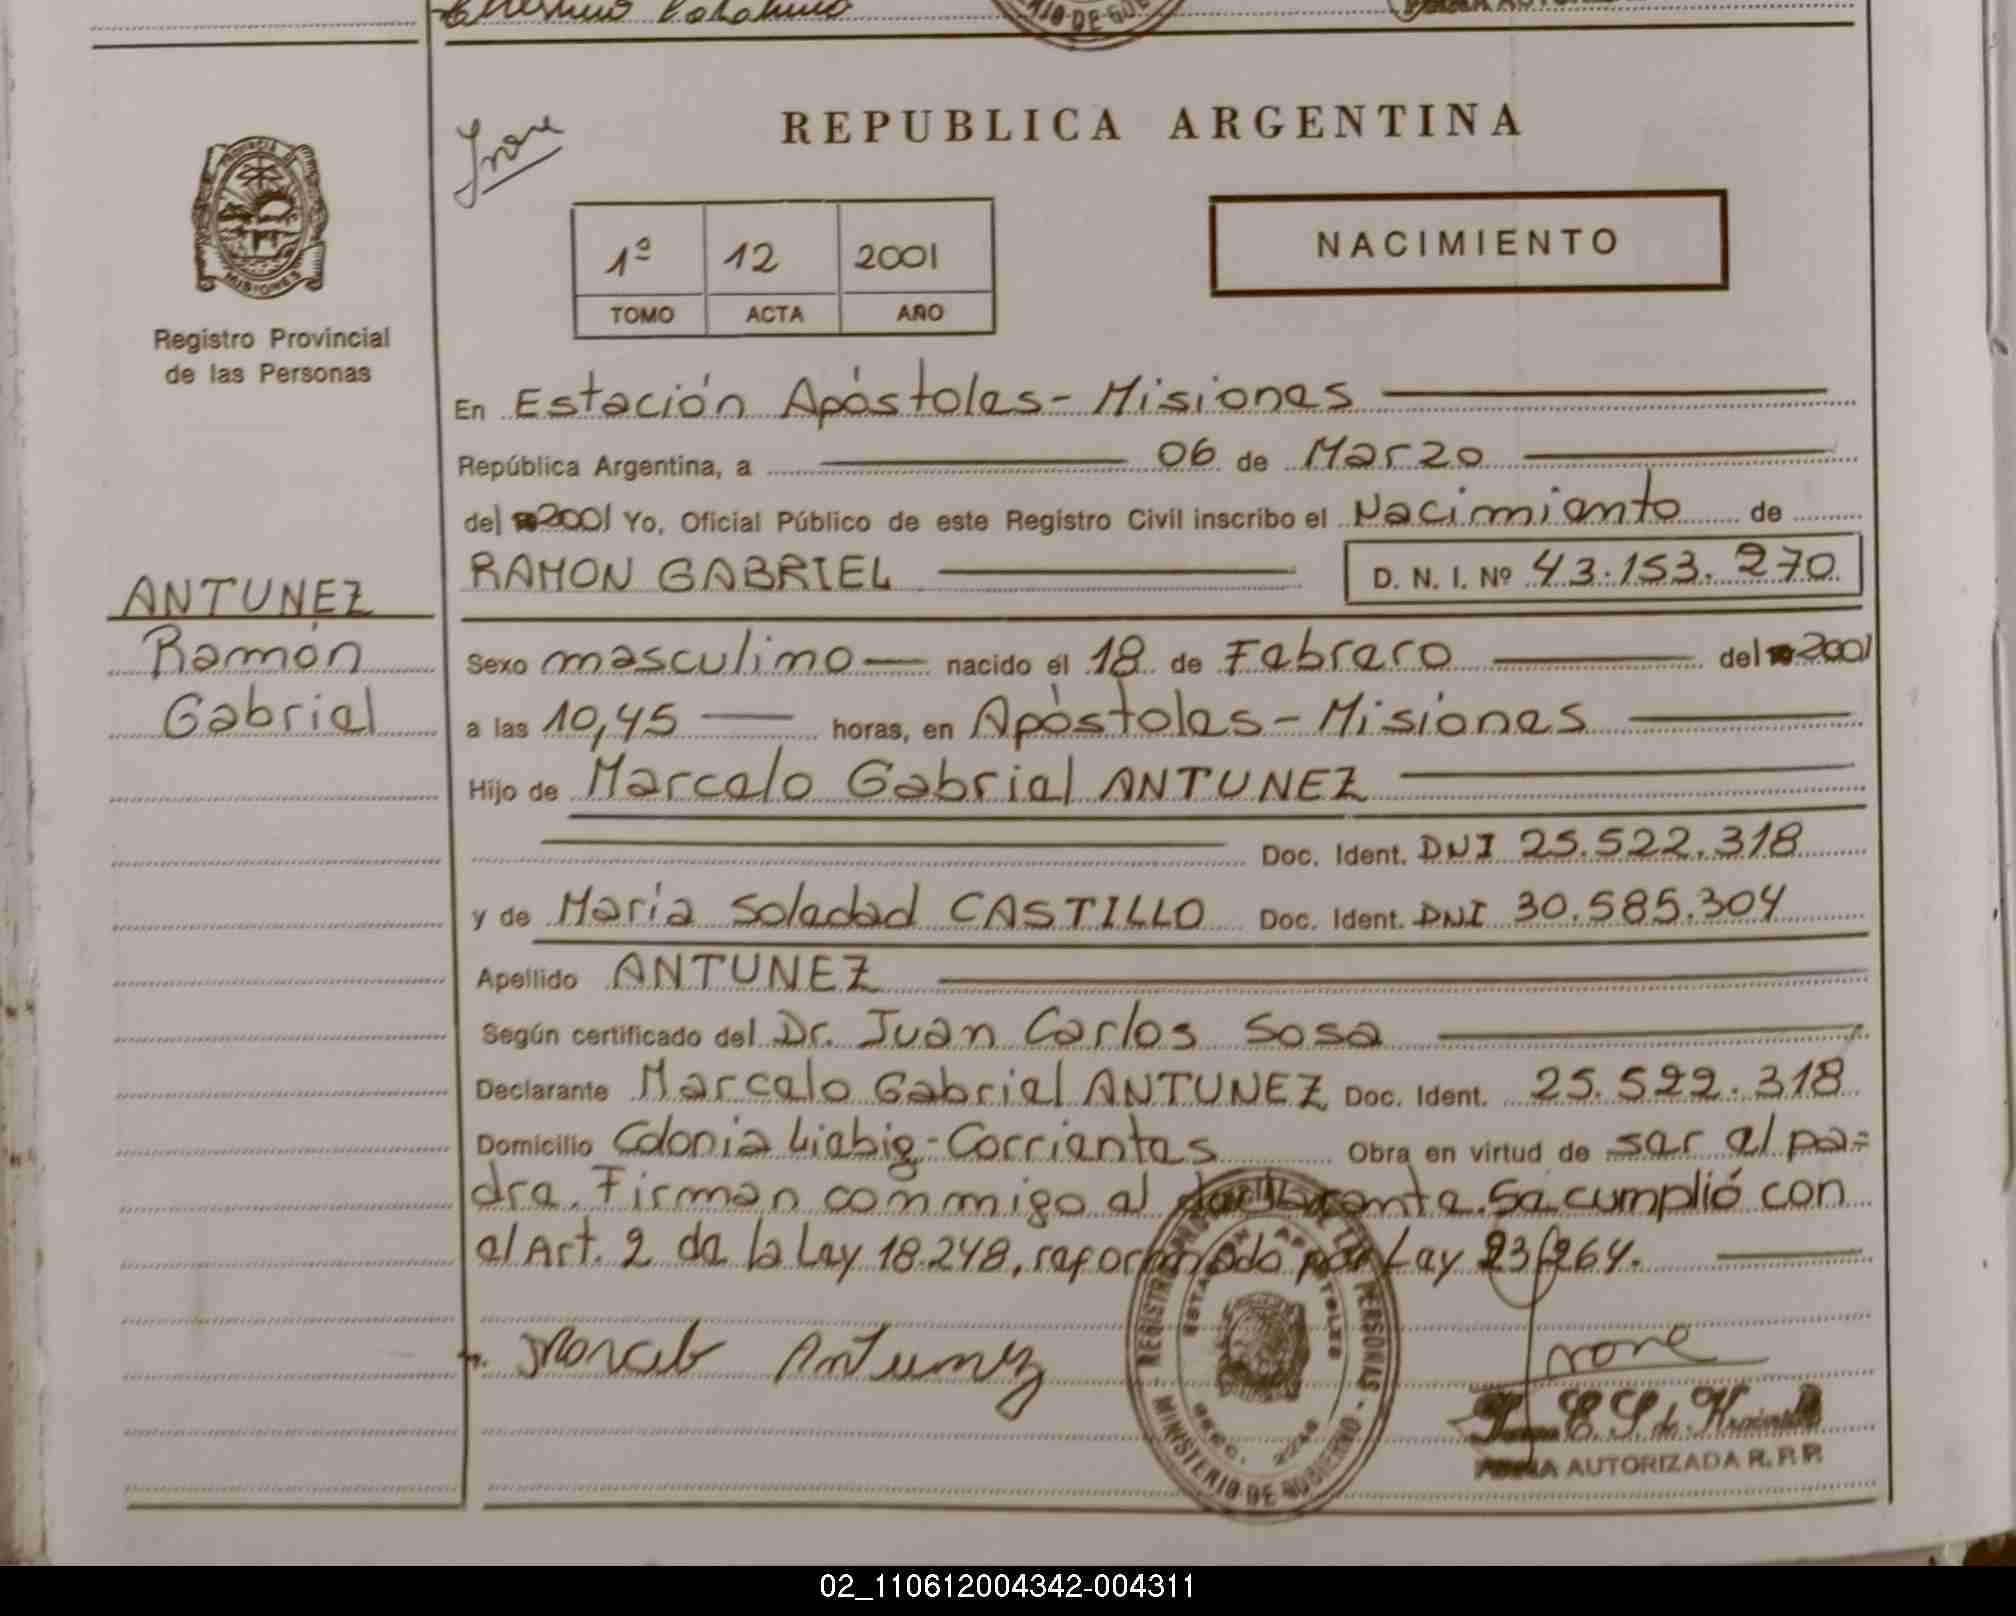 REPUBLICA ARGENTINA
1º 12 2001
TOMO ACTA AÑO
NACIMIENTO
PROVINCIA DE
MISIONES
Registro Provincial
de las Personas
ANTUNEZ
Ramón
Gabriel
En Estación Apóstoles - Misiones
República Argentina, a 06 de Marzo
del 2001 Yo, Oficial Público de este Registro Civil inscribo el Nacimiento de
RAMON GABRIEL D. N. I. Nº 43.153.270
Sexo masculino nacido el 18 de Febrero del 2001
a las 10,45 horas, en Apóstoles - Misiones
Hijo de Marcelo Gabriel ANTUNEZ
Doc. Ident. DNI 25.522.318
y de María Soledad CASTILLO Doc. Ident. DNI 30.585.304
Apellido ANTUNEZ
Según certificado del Dr. Juan Carlos Sosa
Declarante Marcelo Gabriel ANTUNEZ Doc. Ident. 25.522.318
Domicilio Colonia Liebig - Corrientes Obra en virtud de ser el pa=
dre. Firman conmigo el declarante. Se cumplió con
el Art. 2 de la Ley 18.248, reformado por Ley 23.264.
Marcelo Antunez
REGISTRO PROVINCIAL DE LAS PERSONAS - MINISTERIO DE GOBIERNO -
ESTACION APOSTOLES
FIRMA AUTORIZADA R. P. P.
02_110612004342-004311